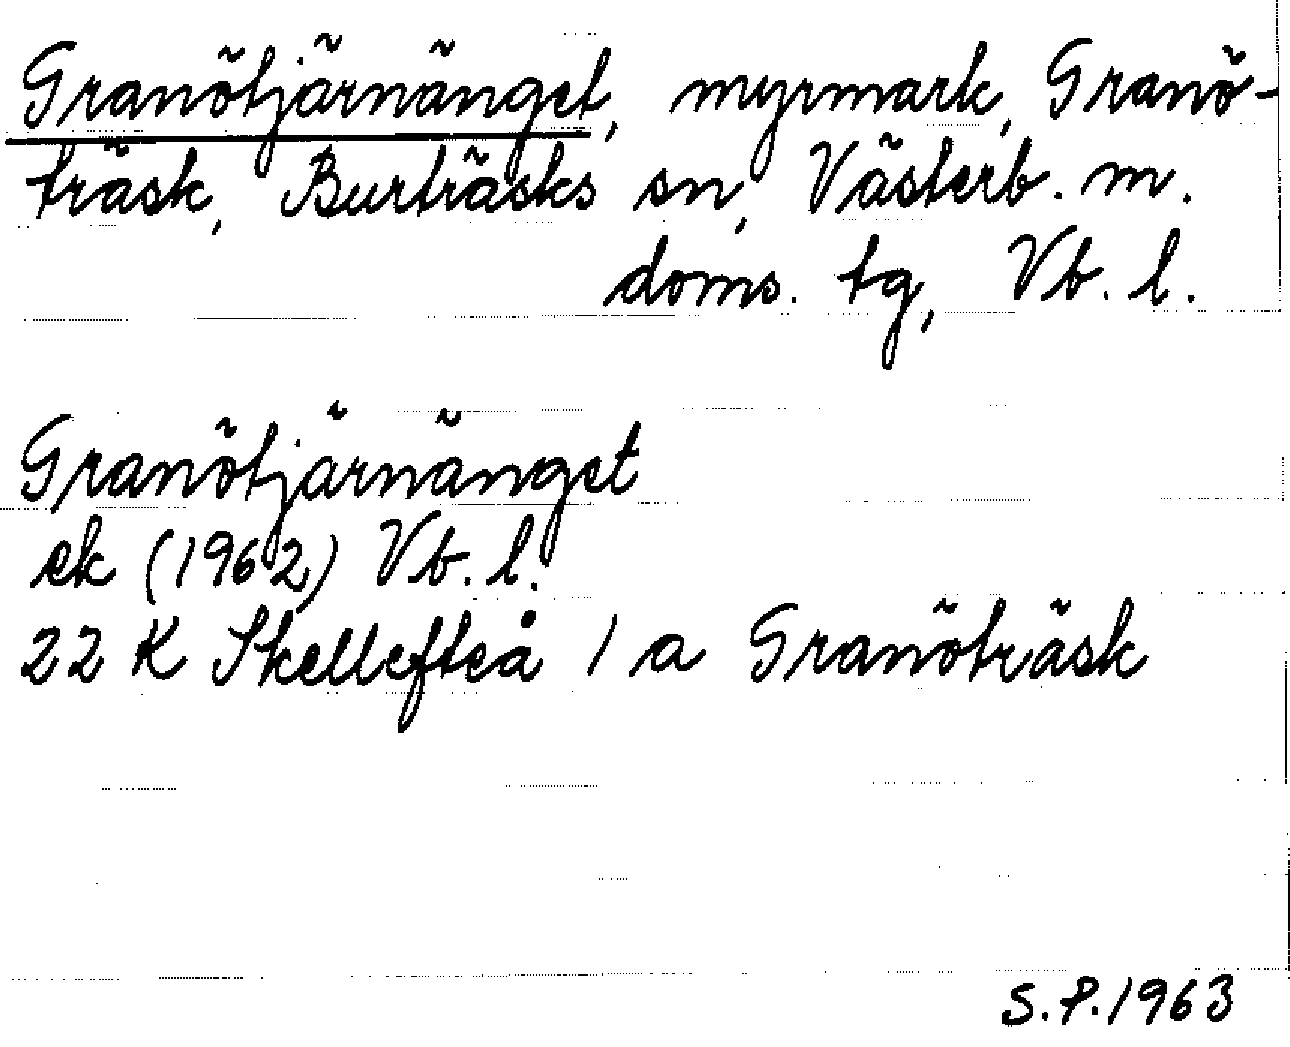 Granötjärnänget, myrmark, Granö-
träsk, Burträsks sn, Västerb. m.
doms. tg, Vb. l.
Granötjärnänget
ek (1962) Vb. l.
22 K Skellefteå 1 a Granöträsk
S.P.1963